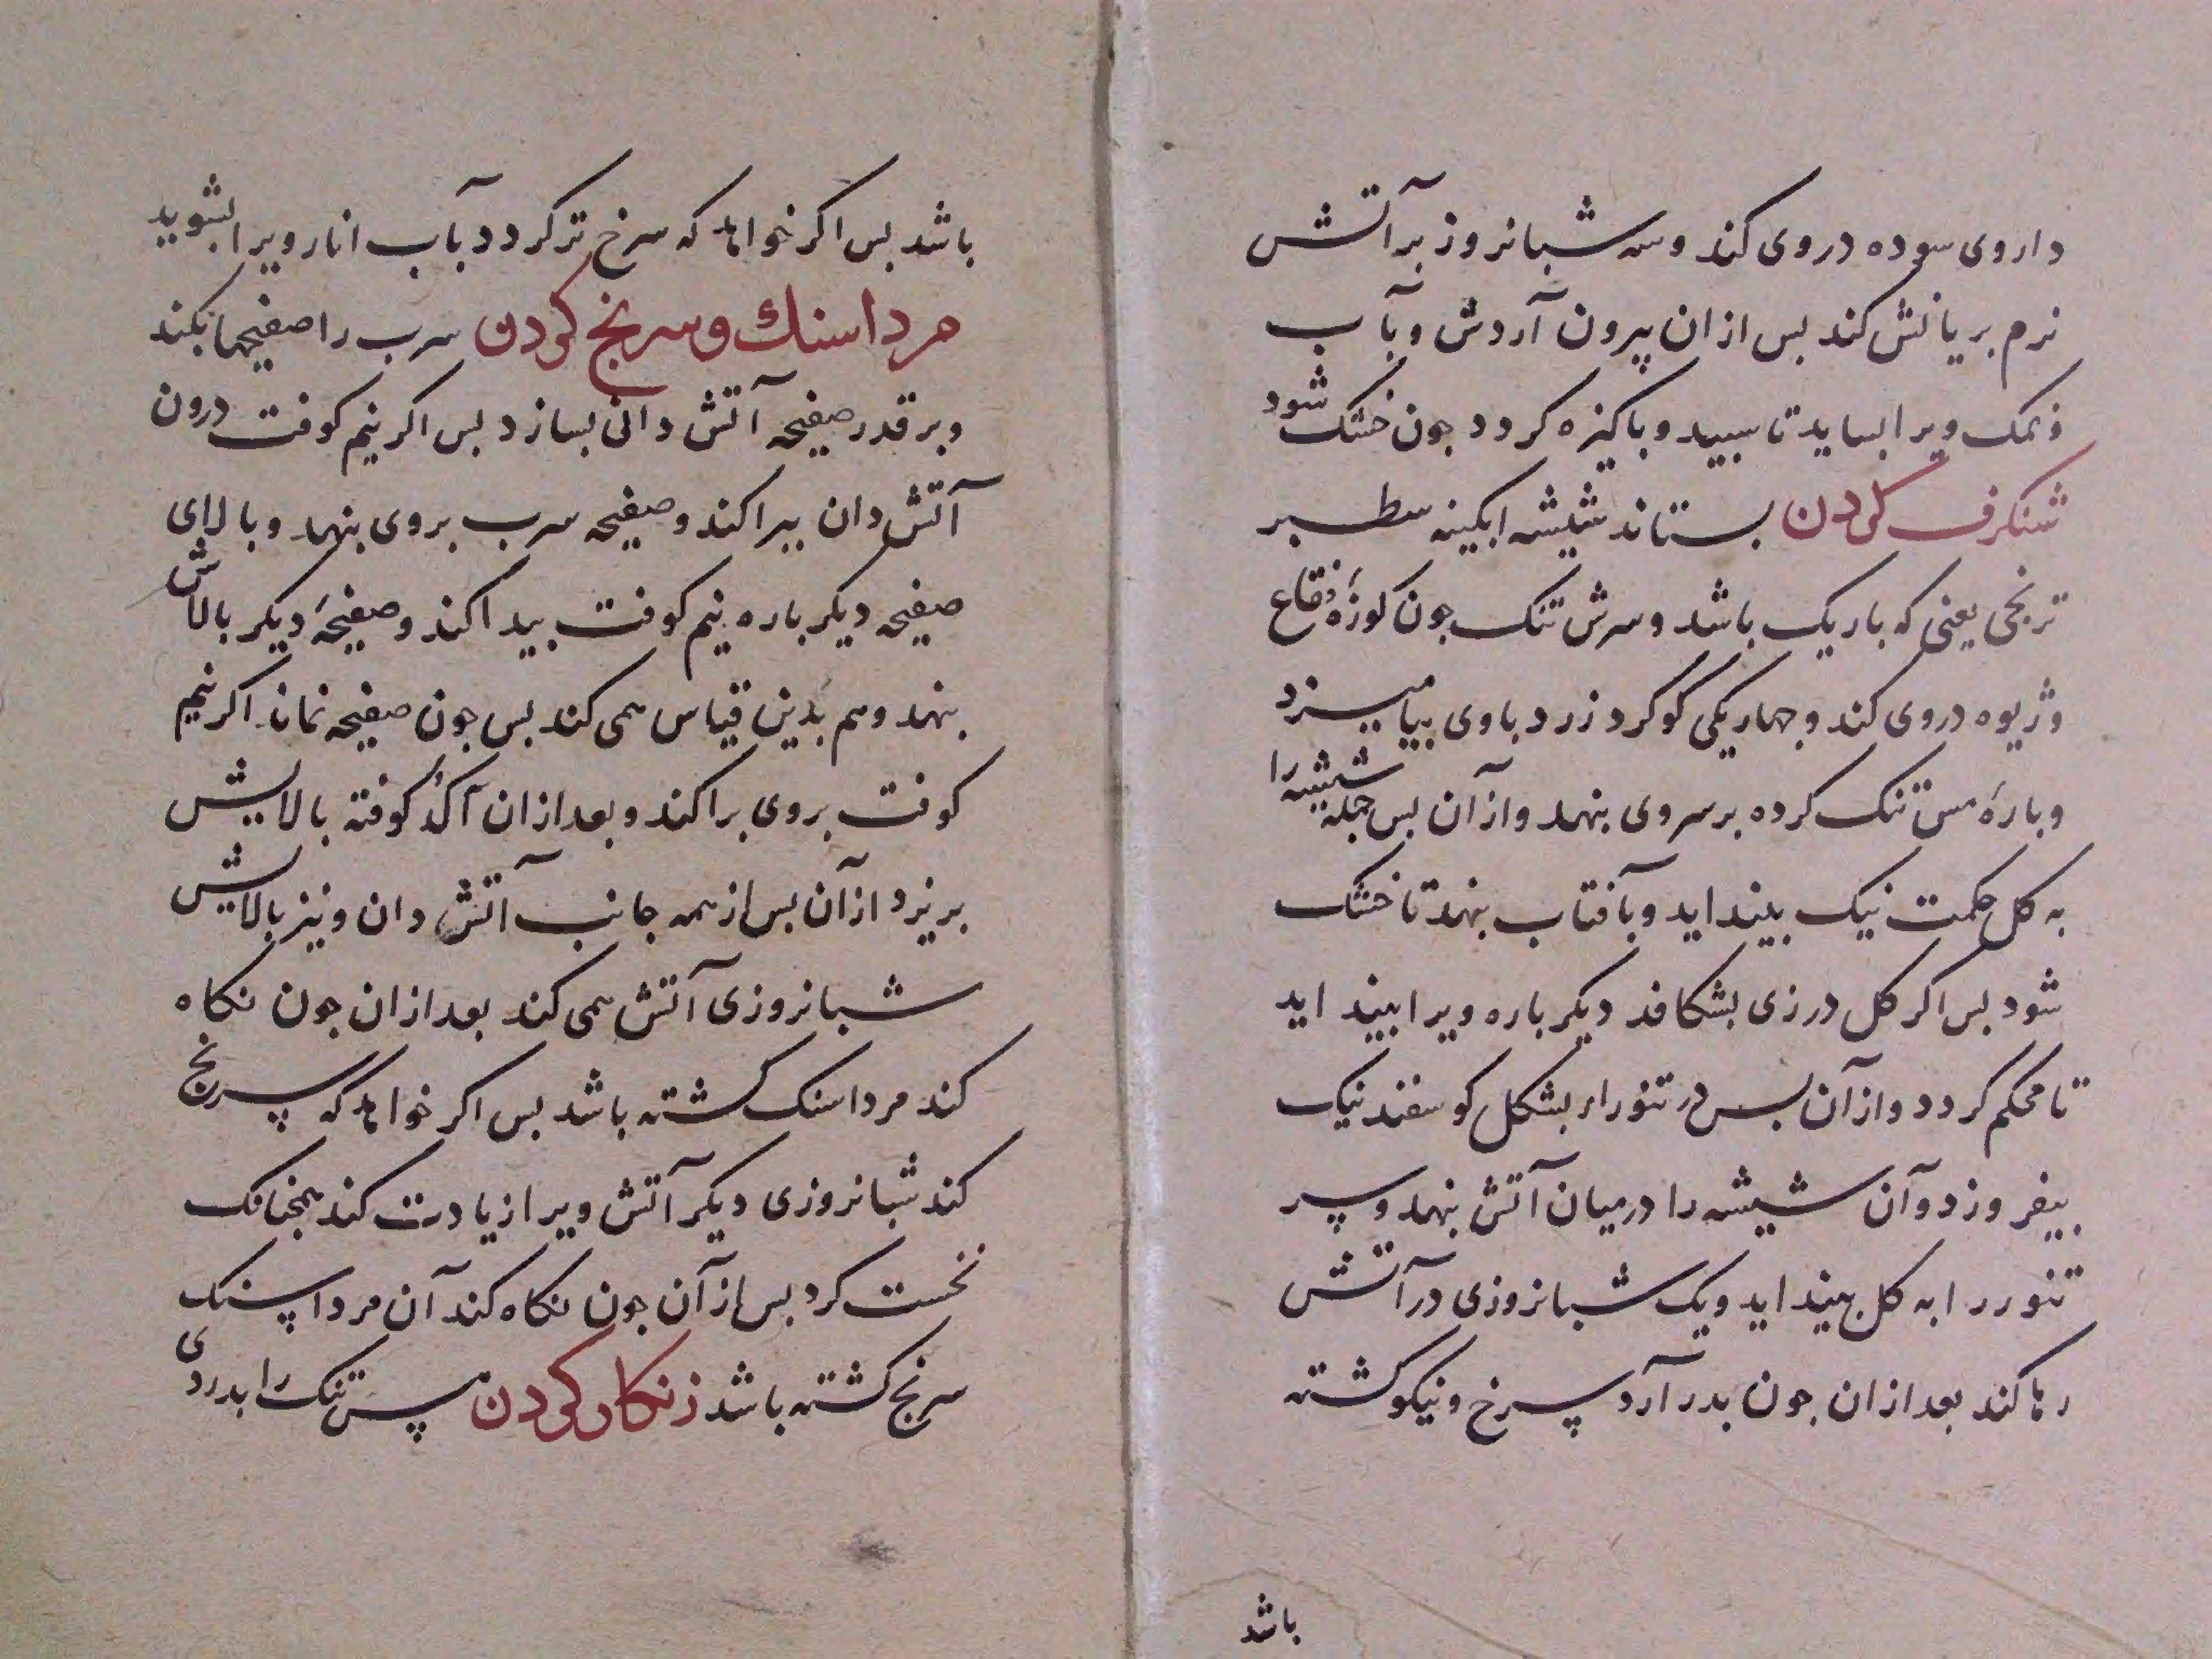 داروی سوده دروی کند و سه شبانروز بر آتش
نرم بریانش کند بس ازان بیرون آردش و بآب
نمک ویرا بساید تا سبید و باکیزه کردد جون خشک شود
شنکرف کردن بستاند شیشه ابکینه سطبر
ترنجی یعنی که باریک باشد و سرش تنک جون کوزهٔ فقاع
وژیوه دروی کند و جهاریکی کوکرد زرد باوی بیامیزد
و بارهٔ مس تنک کرده بر سر وی بنهد و از آن بس جمله شیشه را
به کل حکمت نیک بینداید و بآفتاب بنهد تا خشک
شود بس اکر کل درزی بشکافد دیکر باره ویرا بینداید
تا محکم کردد و از آن بس در تنور بشکل کوسفند نیک
بیفروزد و آن شیشه را در میان آتش بنهد و سر
تنور را به کل بینداید و یک شبانروزی در آتش
رها کند بعد ازان جون بدر آرد سرخ و نیکو کشته
باشد
باشد بس اکر خواهد که سرخ تر کردد بآب انار ویرا بشوید
مرداسنک و سرنج کردن سرب را صفیحها بکند
و بر قدر صفیحه آتش دانی بسازد بس اکر نیم کوفت درون
آتش دان ببراکند و صفیحه سرب بروی بنهد و بالای
صفیحه دیکر باره نیم کوفت ببراکند و صفیحهٔ دیکر بالاش
بنهد و هم بدین قیاس همی کند بس جون صفیحه نماند اکر نیم
کوفت بروی براکند و بعد ازان آکر کوفته بالایش
بریزد از آن بس از همه جانب آتش دان و نیز بالایش
شبانروزی آتش همی کند بعد ازان جون نکاه
کند مرداسنک کشته باشد بس اکر خواهد که سرنج
کند شبانروزی دیکر آتش ویرا زیادت کند همجنانک
نخست کرد بس از آن جون نکاه کند آن مرداسنک
سرنج کشته باشد زنکار کردن مس تنک را بدردی